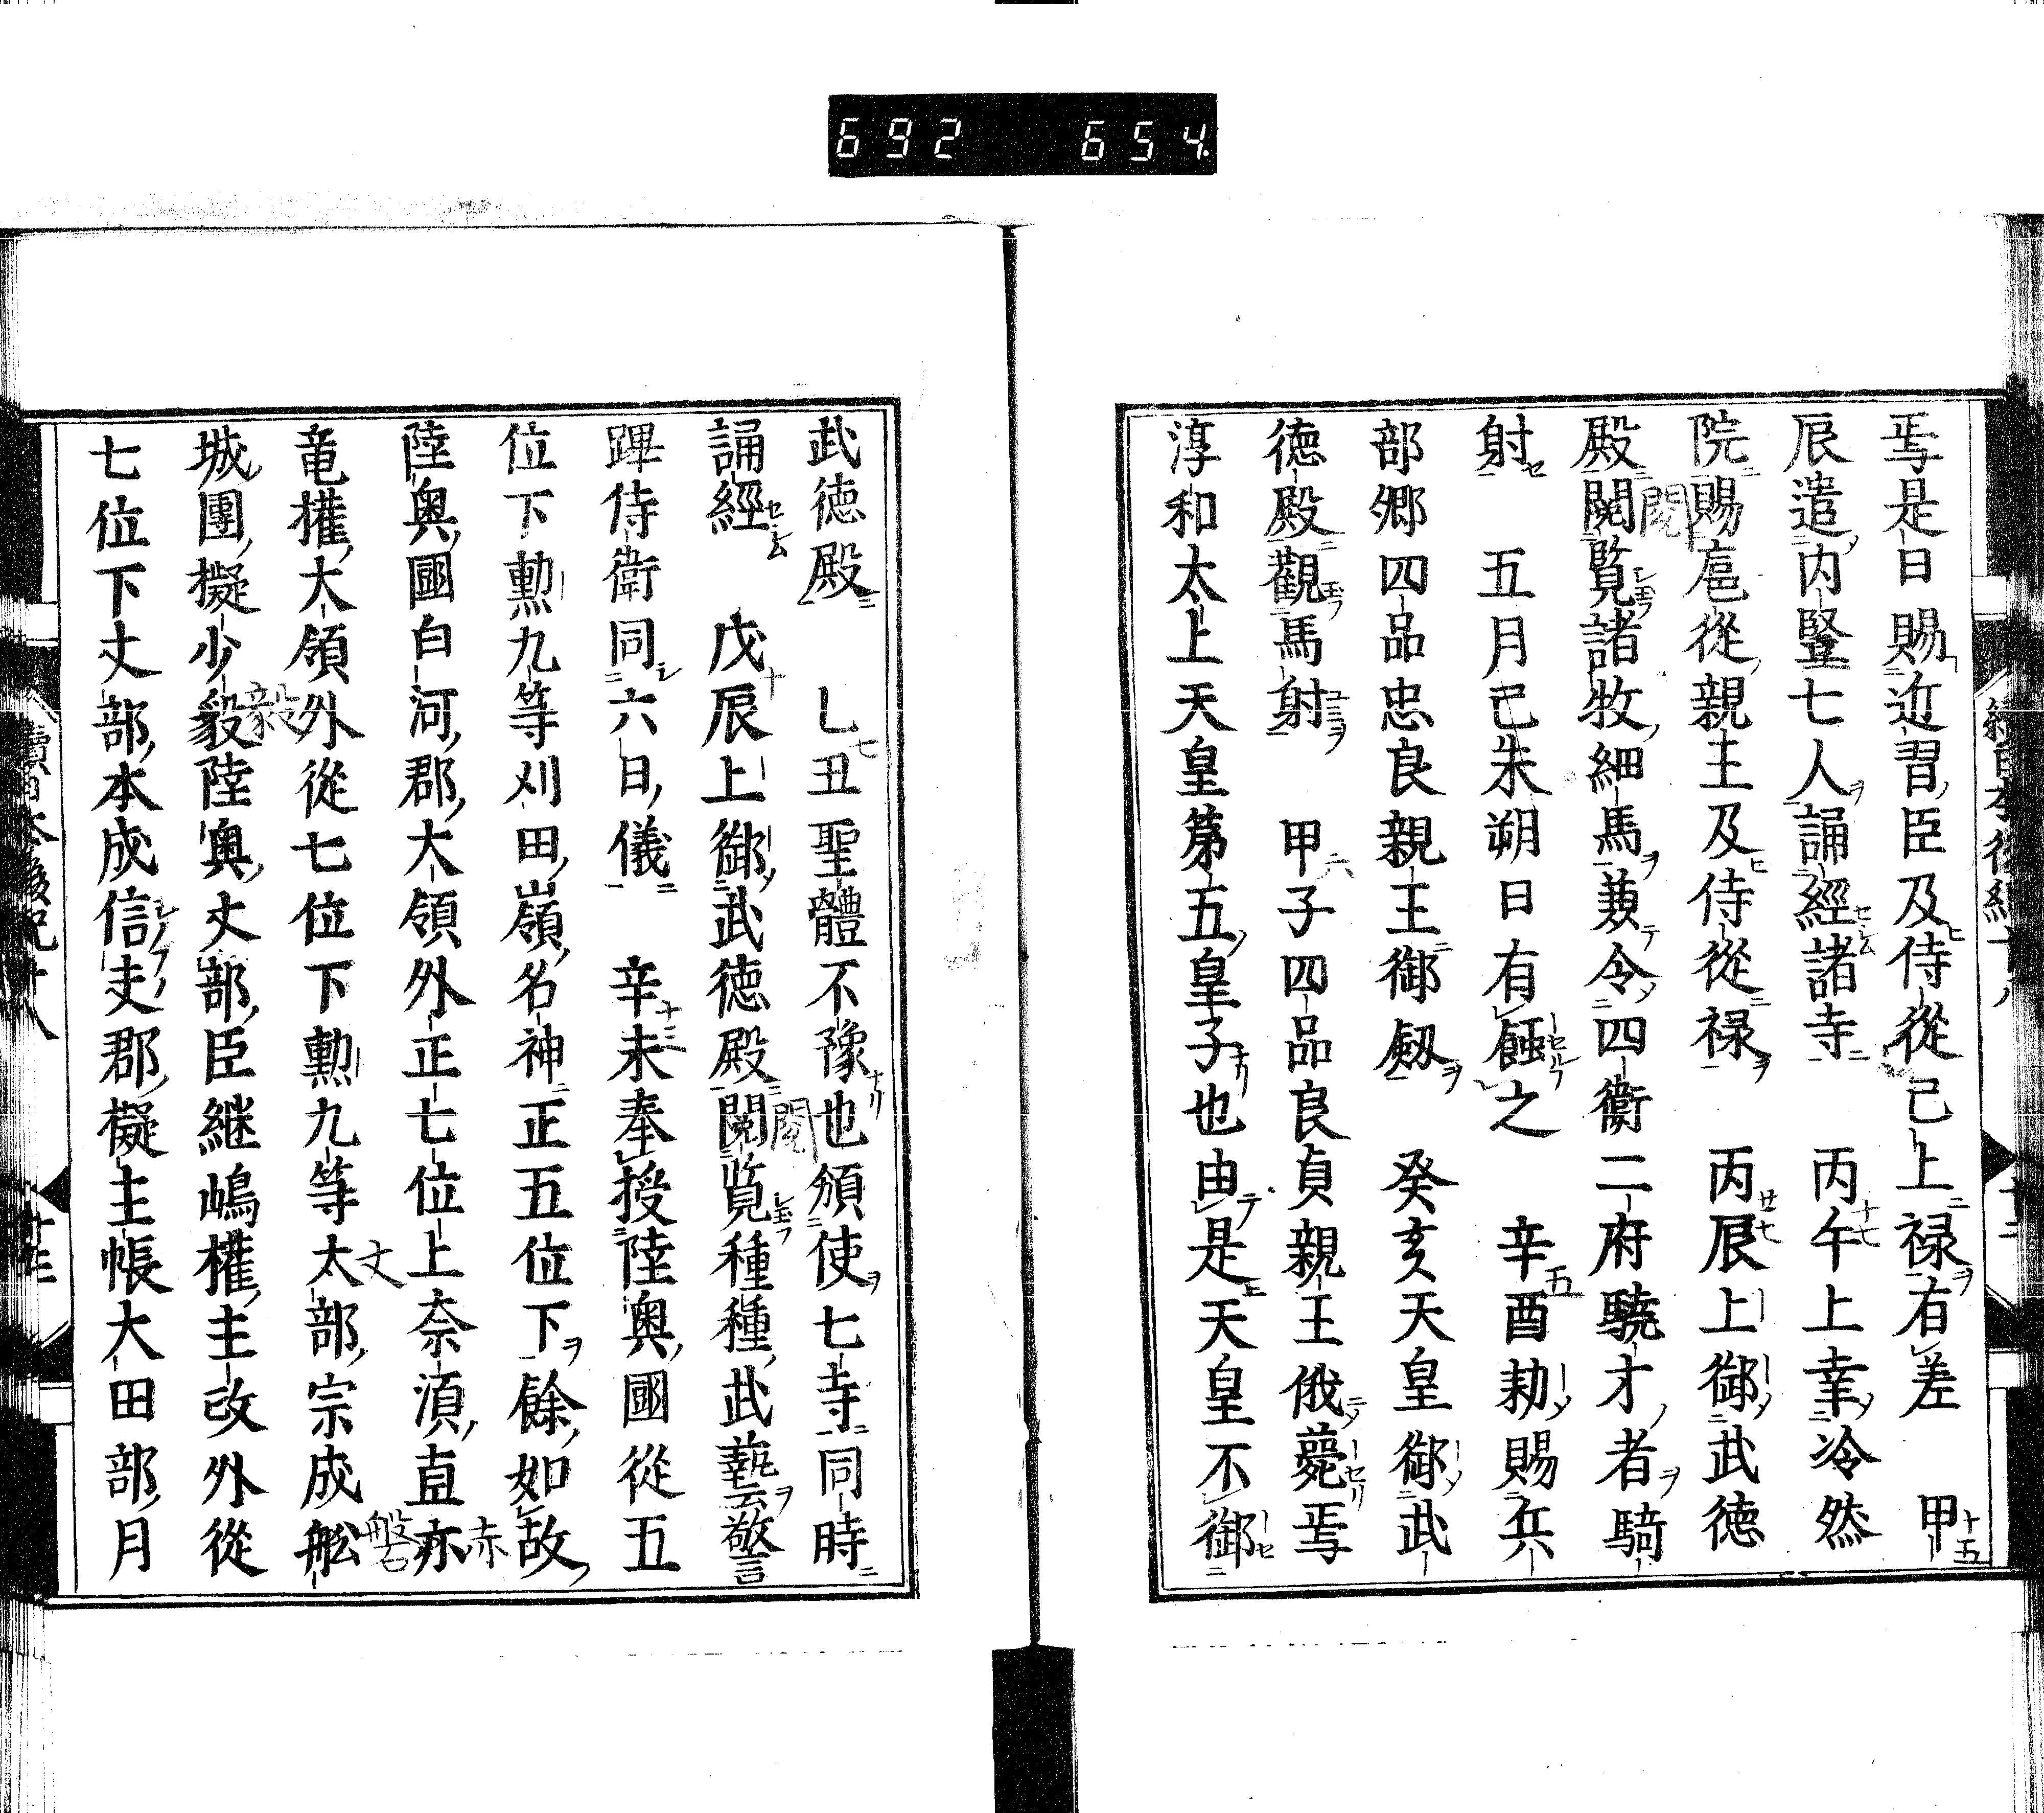 692 654
焉是日賜近習臣及侍從已上禄有差 甲
辰遣内豎七人誦經諸寺 丙午上幸冷然
院賜扈從親王及侍從禄 丙辰上御武德
殿閲覧諸牧細馬兼令四衞二府驍才者騎
射 五月己朱朔日有蝕之 辛酉勅賜兵
部郷四品忠良親王御劔 癸亥天皇御武
德殿觀馬射 甲子四品良貞親王俄薨焉
淳和太上天皇第五皇子也由是天皇不御
武德殿 乚丑聖體不豫也頒使七寺同時
誦經 戊辰上御武德殿閲覧種種武藝警
蹕侍衛同六日儀 辛未奉授陸奥國從五
位下勲九等刈田嶺名神正五位下餘如故
陸奥國白河郡大領外正七位上奈湏直亦
竜權大領外從七位下勲九等太部宗成舩
城團擬少毅陸奥丈部臣継嶋權主政外從
七位下丈部本成信夫郡擬主帳大田部月